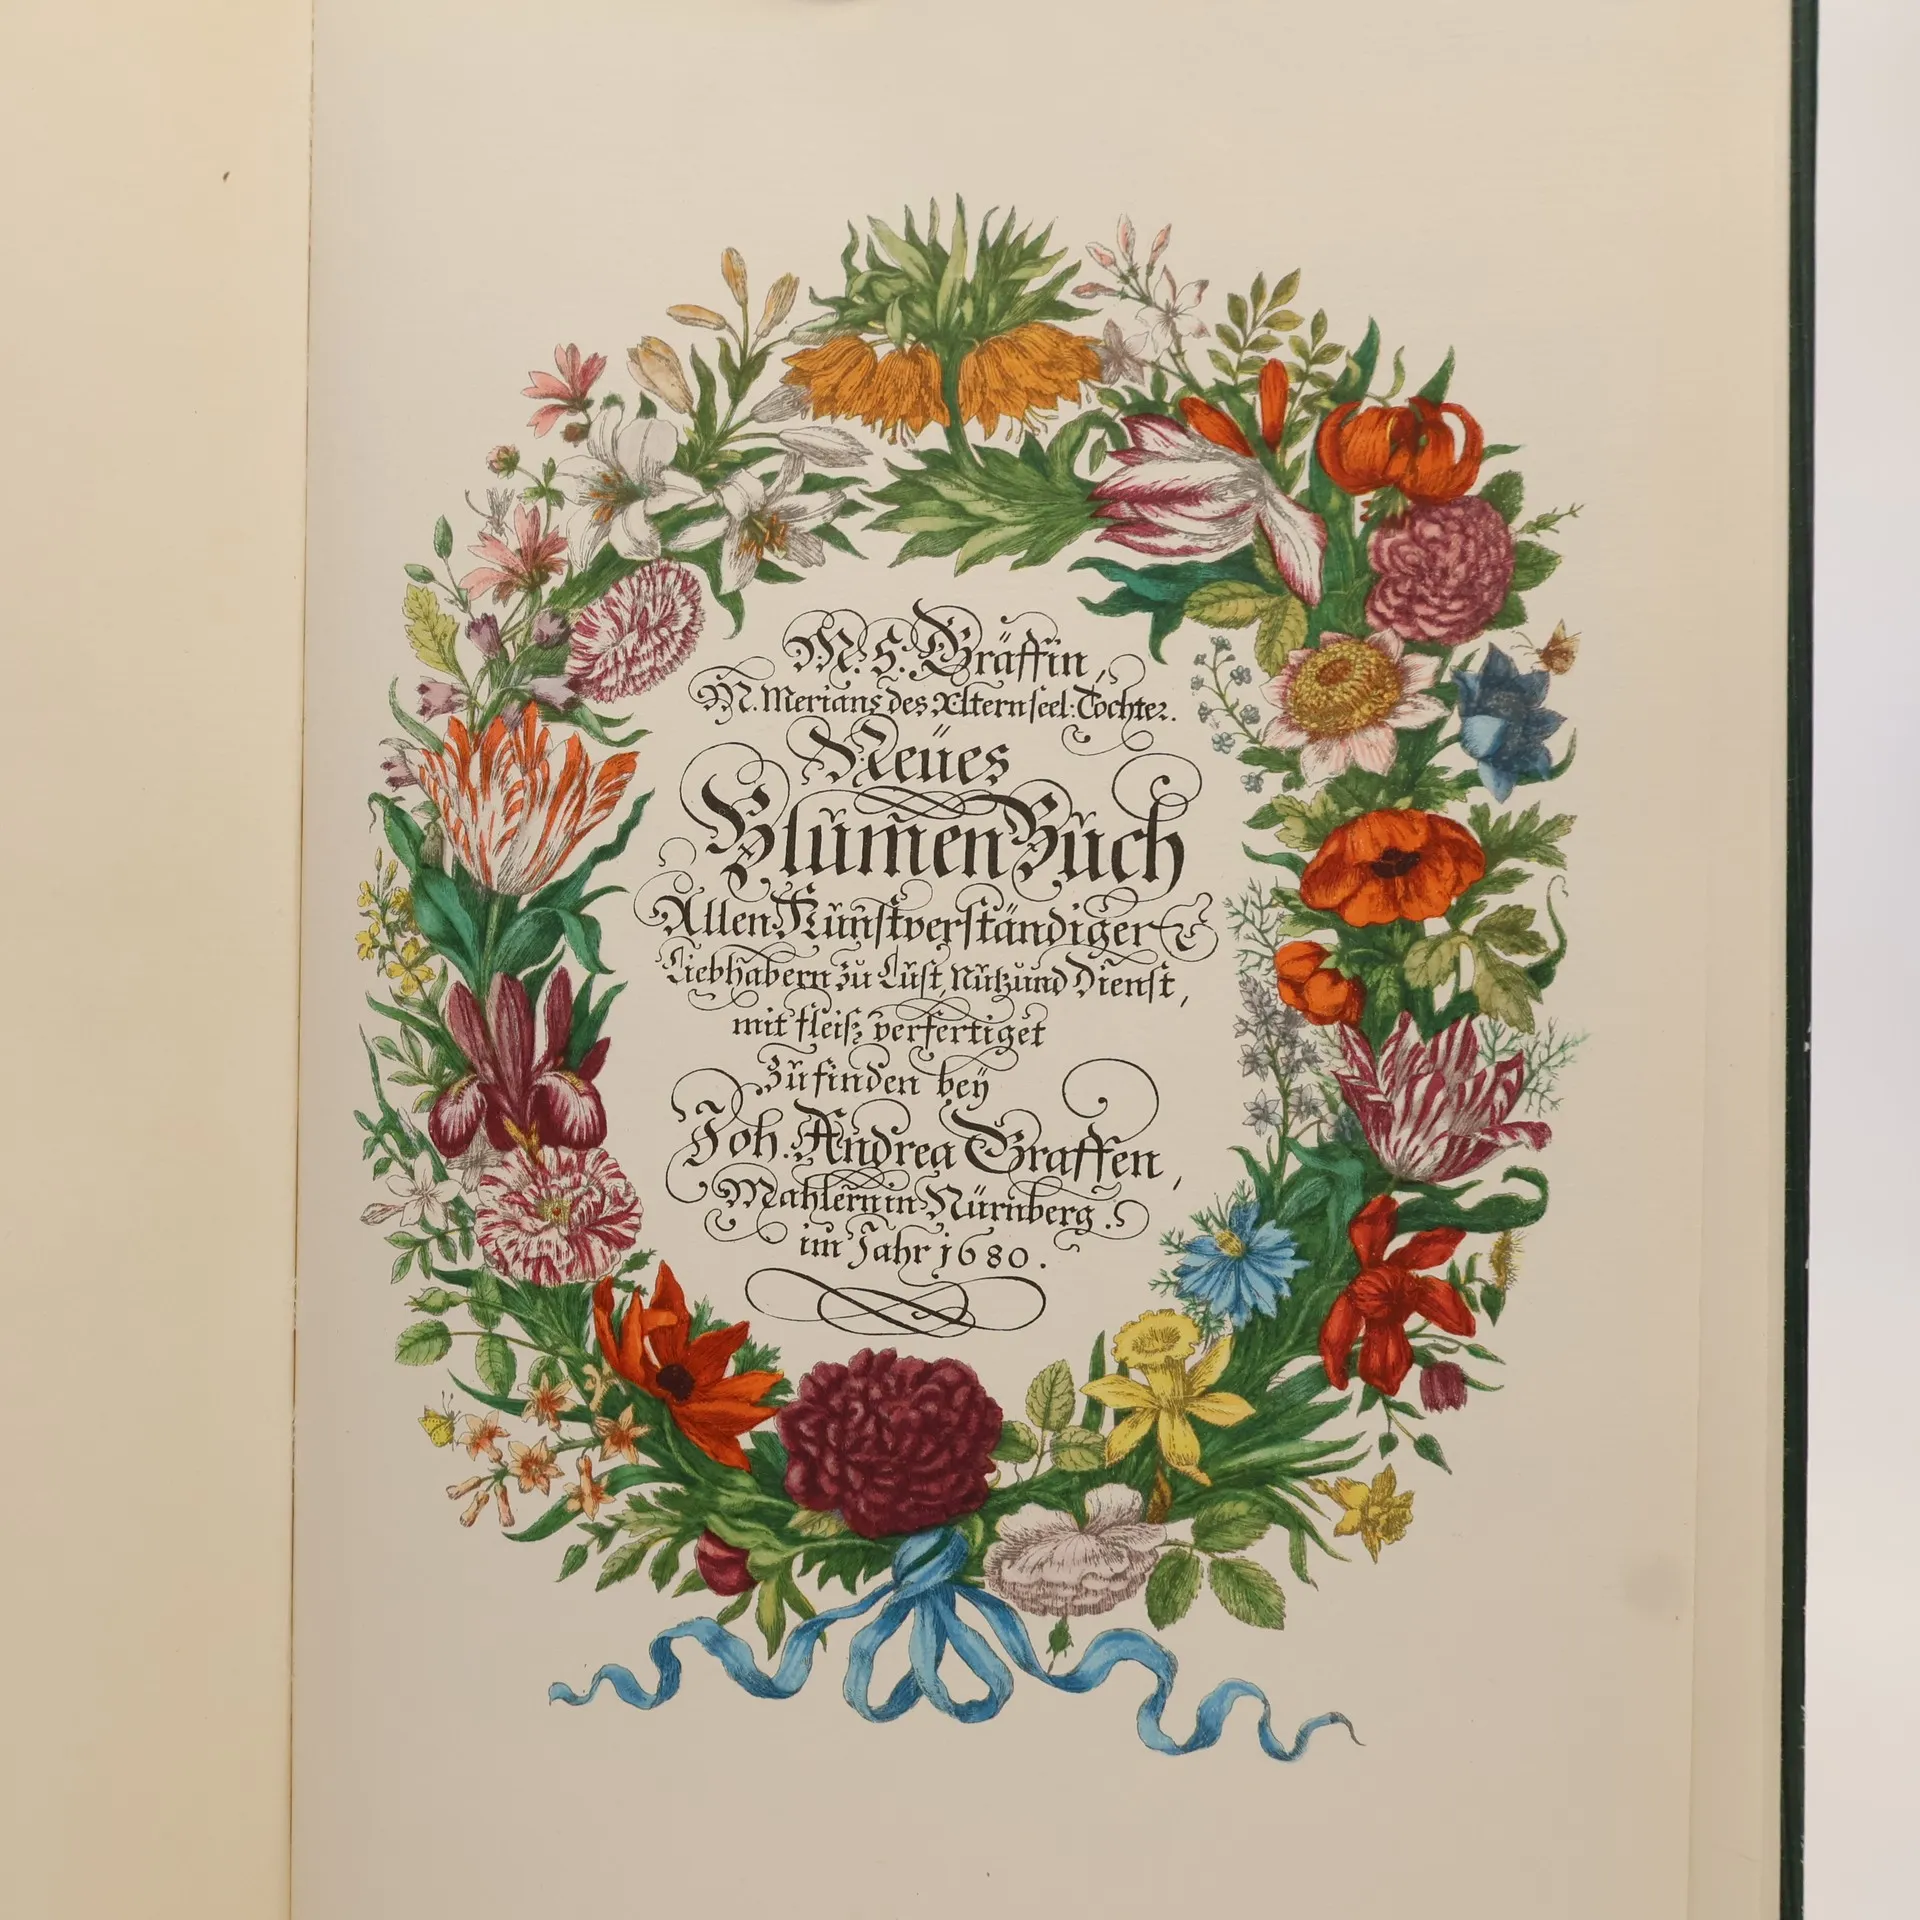 M. S. Gräffin,
M. Merians des Ältern seel: Tochter.
Neües
Blumen Büch
Allen Kunstverständigen
Liebhabern zu Lust, Nutz und Dienst,
mit fleiß verfertiget
Zu finden beÿ
Joh. Andrea Graffen,
Mahlern in Nürnberg.
im Jahr 1680.